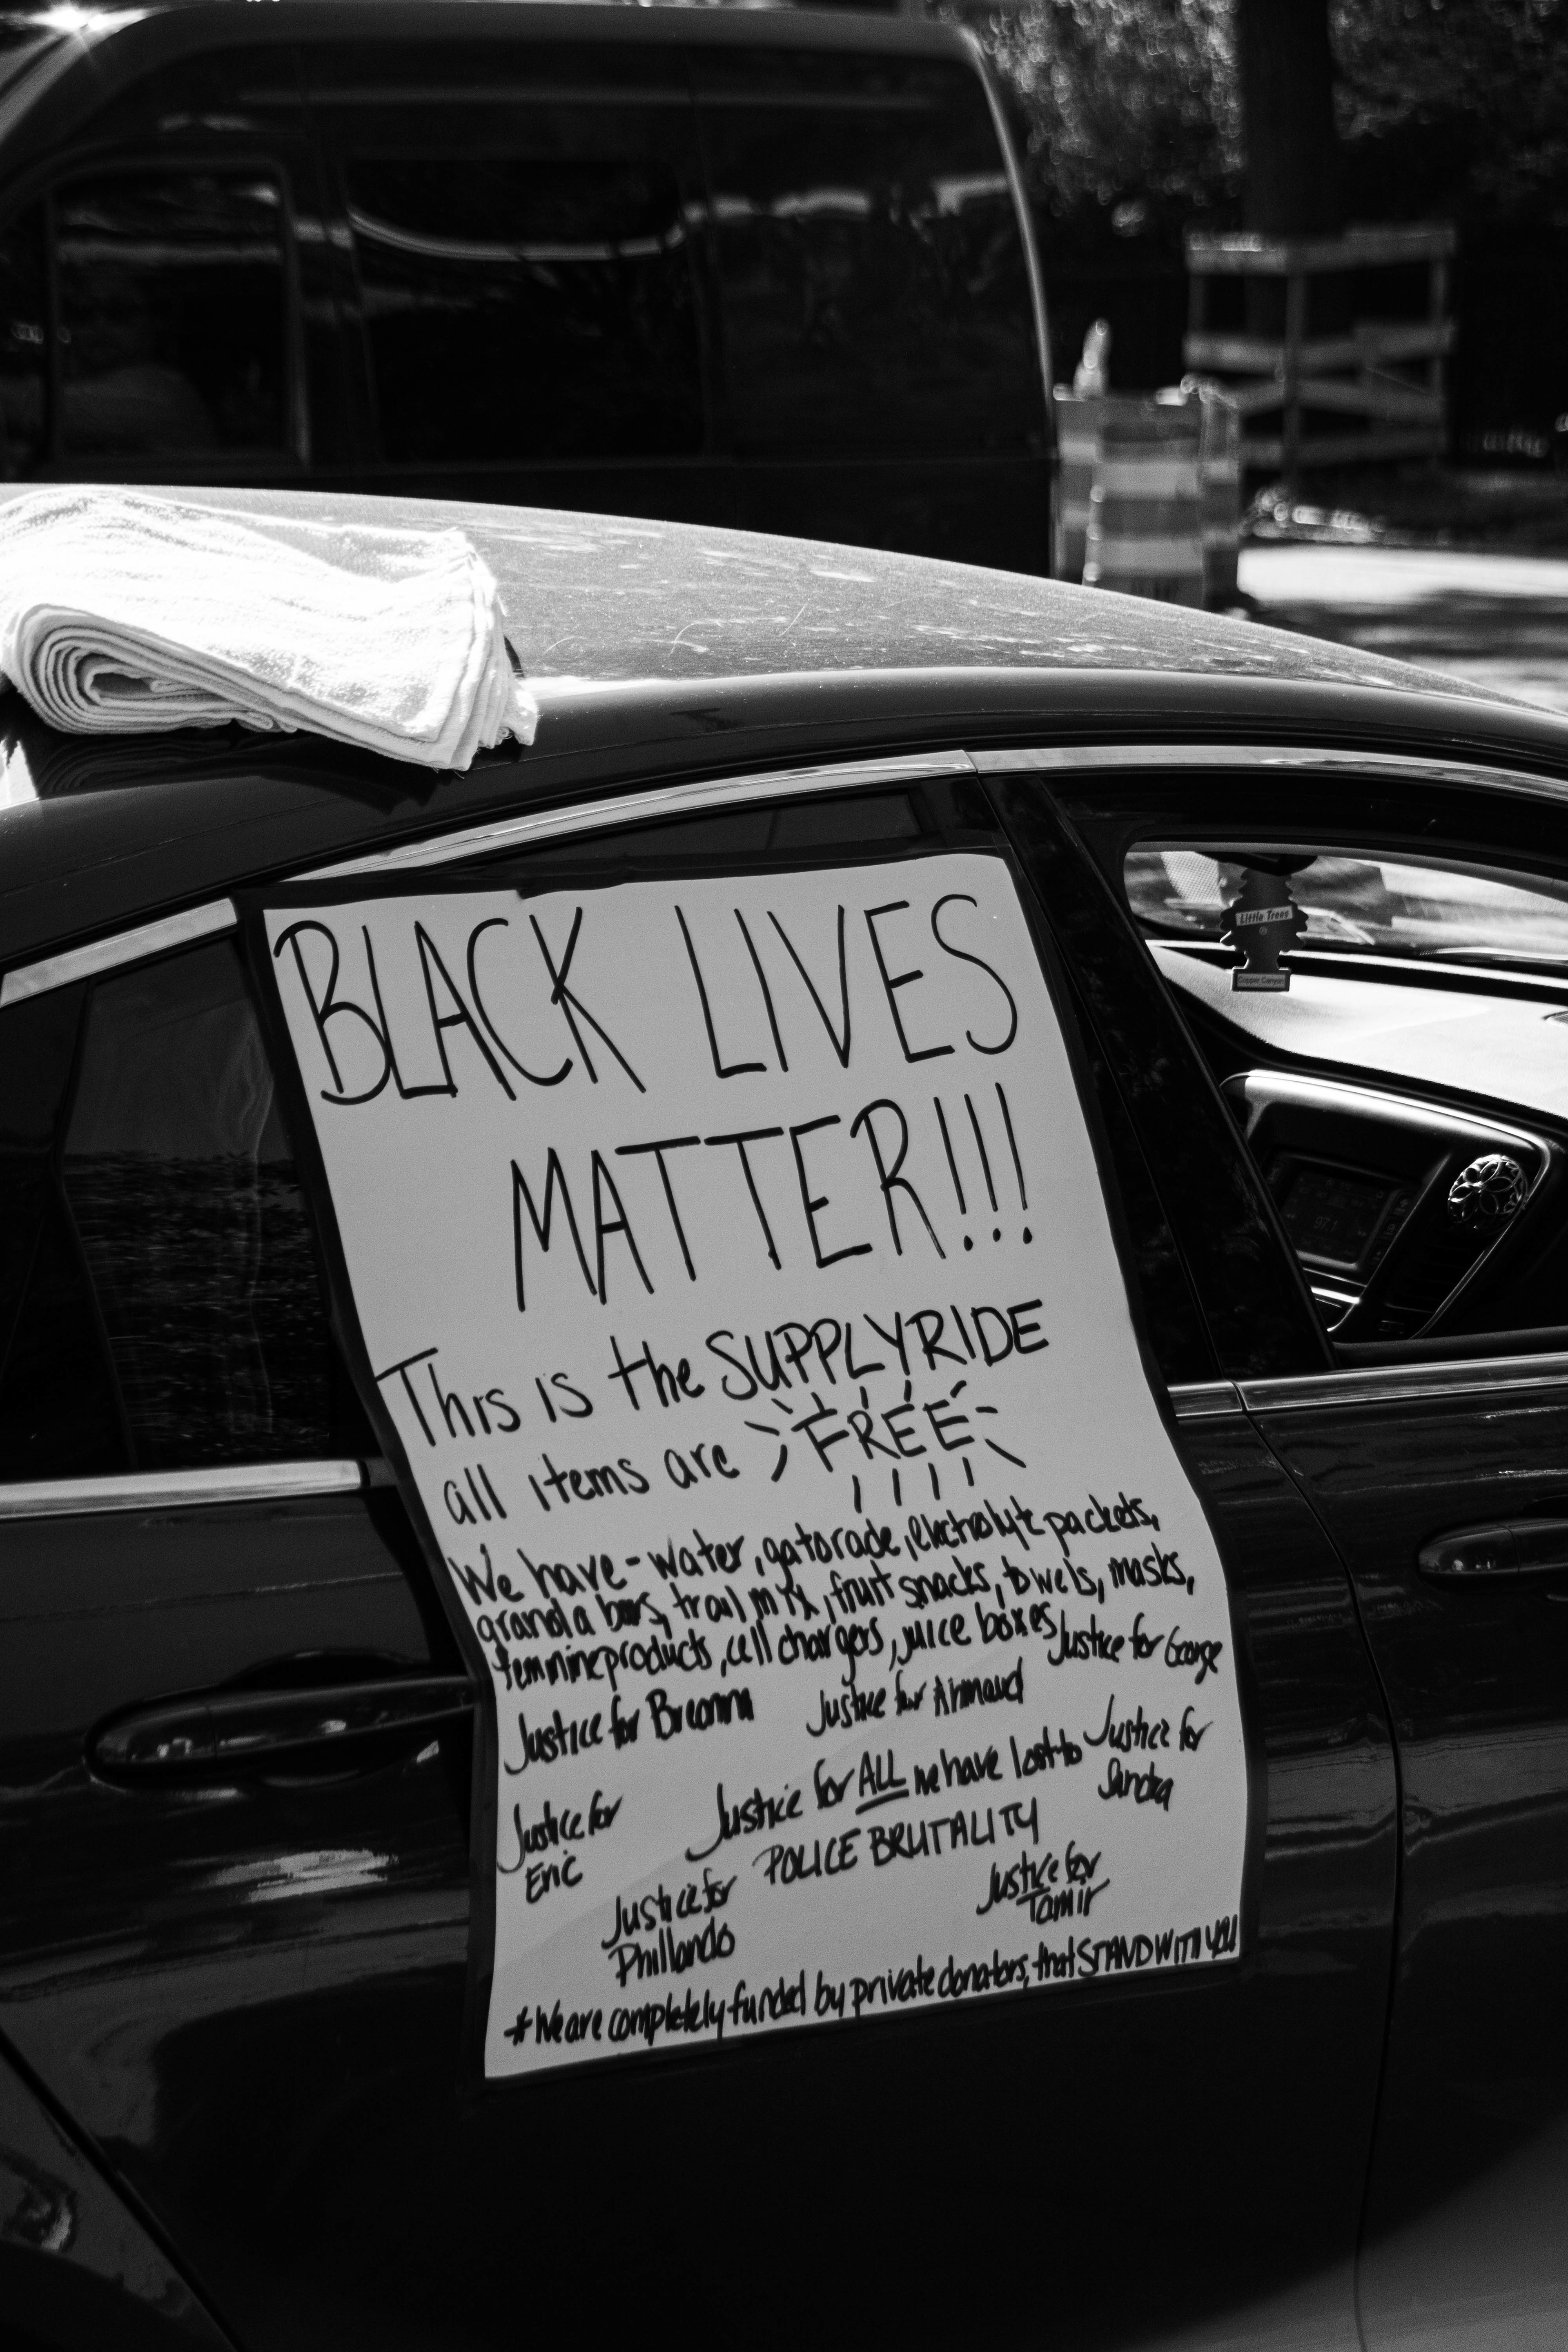 Little Trees
Copper Canyon
97.1
BLACK LIVES
MATTER!!!
This is the SUPPLYRIDE
all items are FREE
We have - water, gatorade, electrolyte packets,
granola bars, trail mix, fruit snacks, towels, masks,
feminine products, cell chargers, juice boxes
Justice for George
Justice for Breonna
Justice for Ahmaud
Justice for
Sandra
Justice for ALL we have lost to
POLICE BRUTALITY
Justice for
Eric
Justice for
Phillando
Justice for
Tamir
* We are completely funded by private donators, that STAND WITH YOU